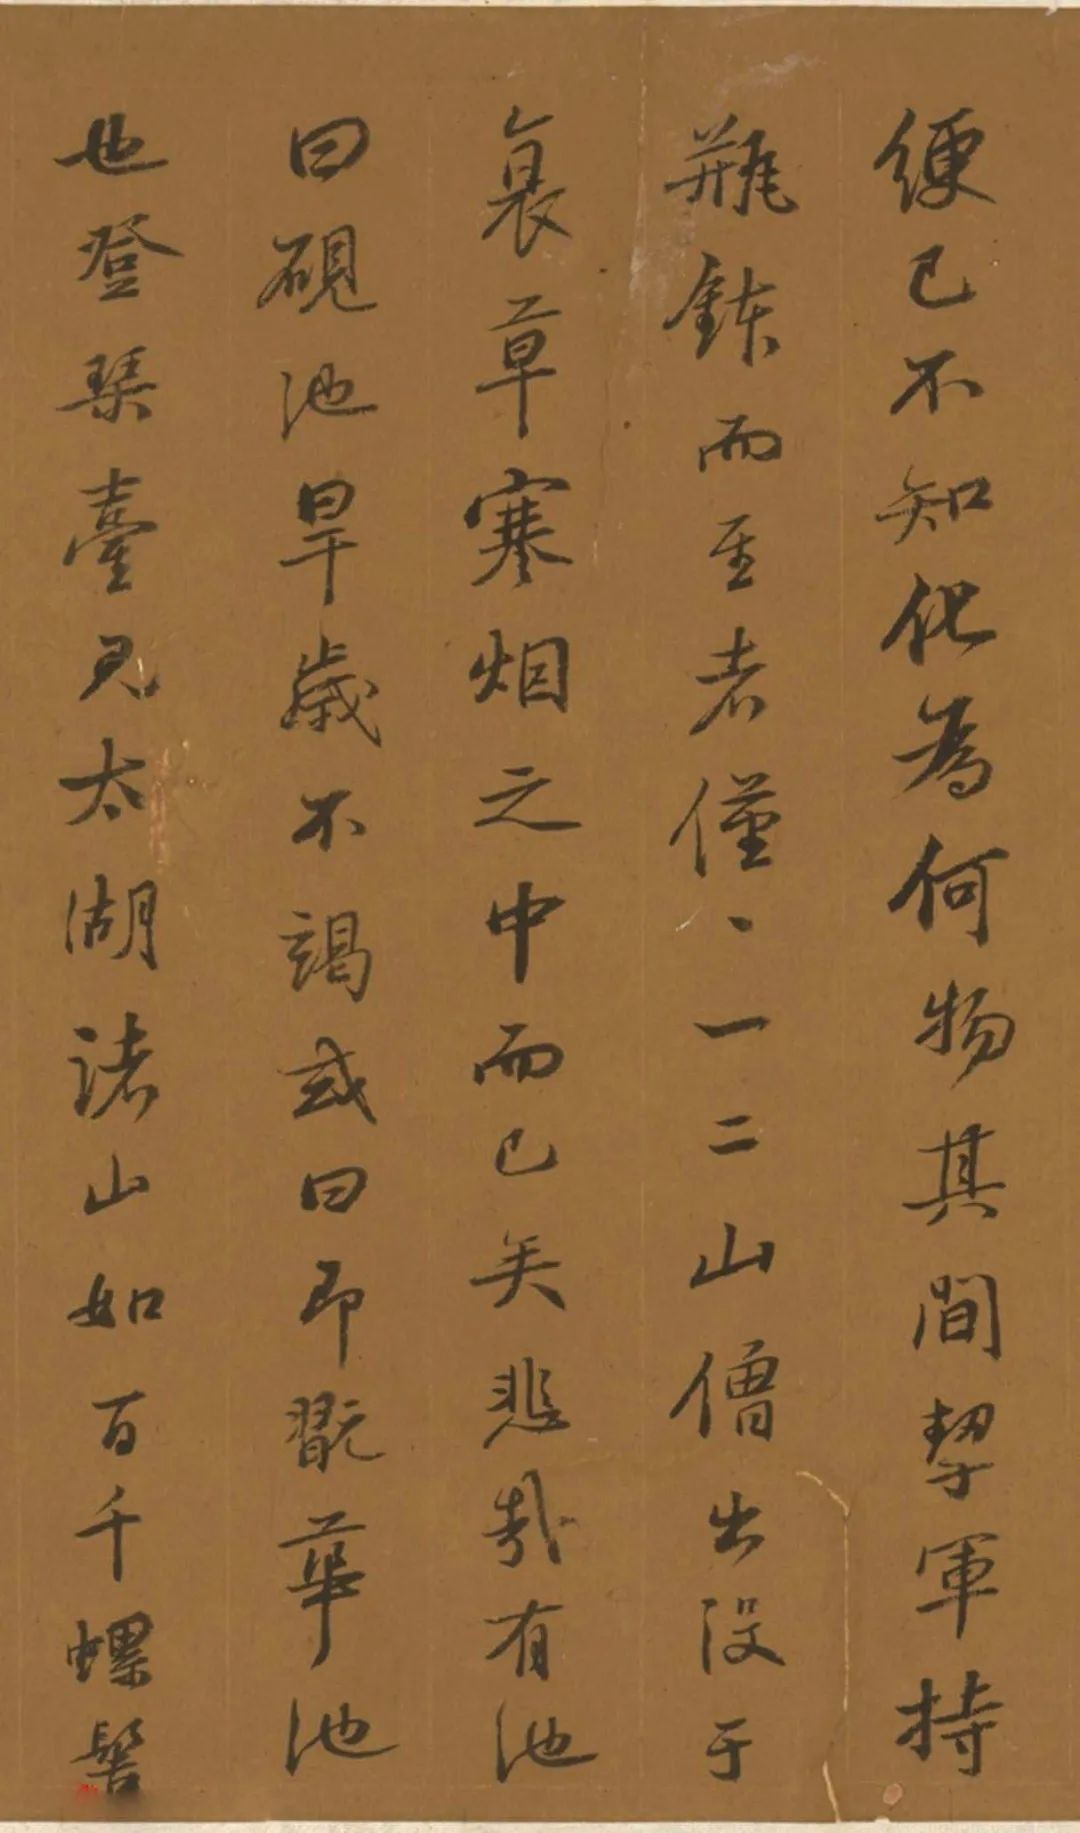 便已不知化為何物其間挈軍持
瓶鉢而至者僅、一二山僧出没于
衰草寒烟之中而已矣悲哉有池
曰硯池旱歲不竭或曰即翫華池
也登琴臺見太湖諸山如百千螺髻